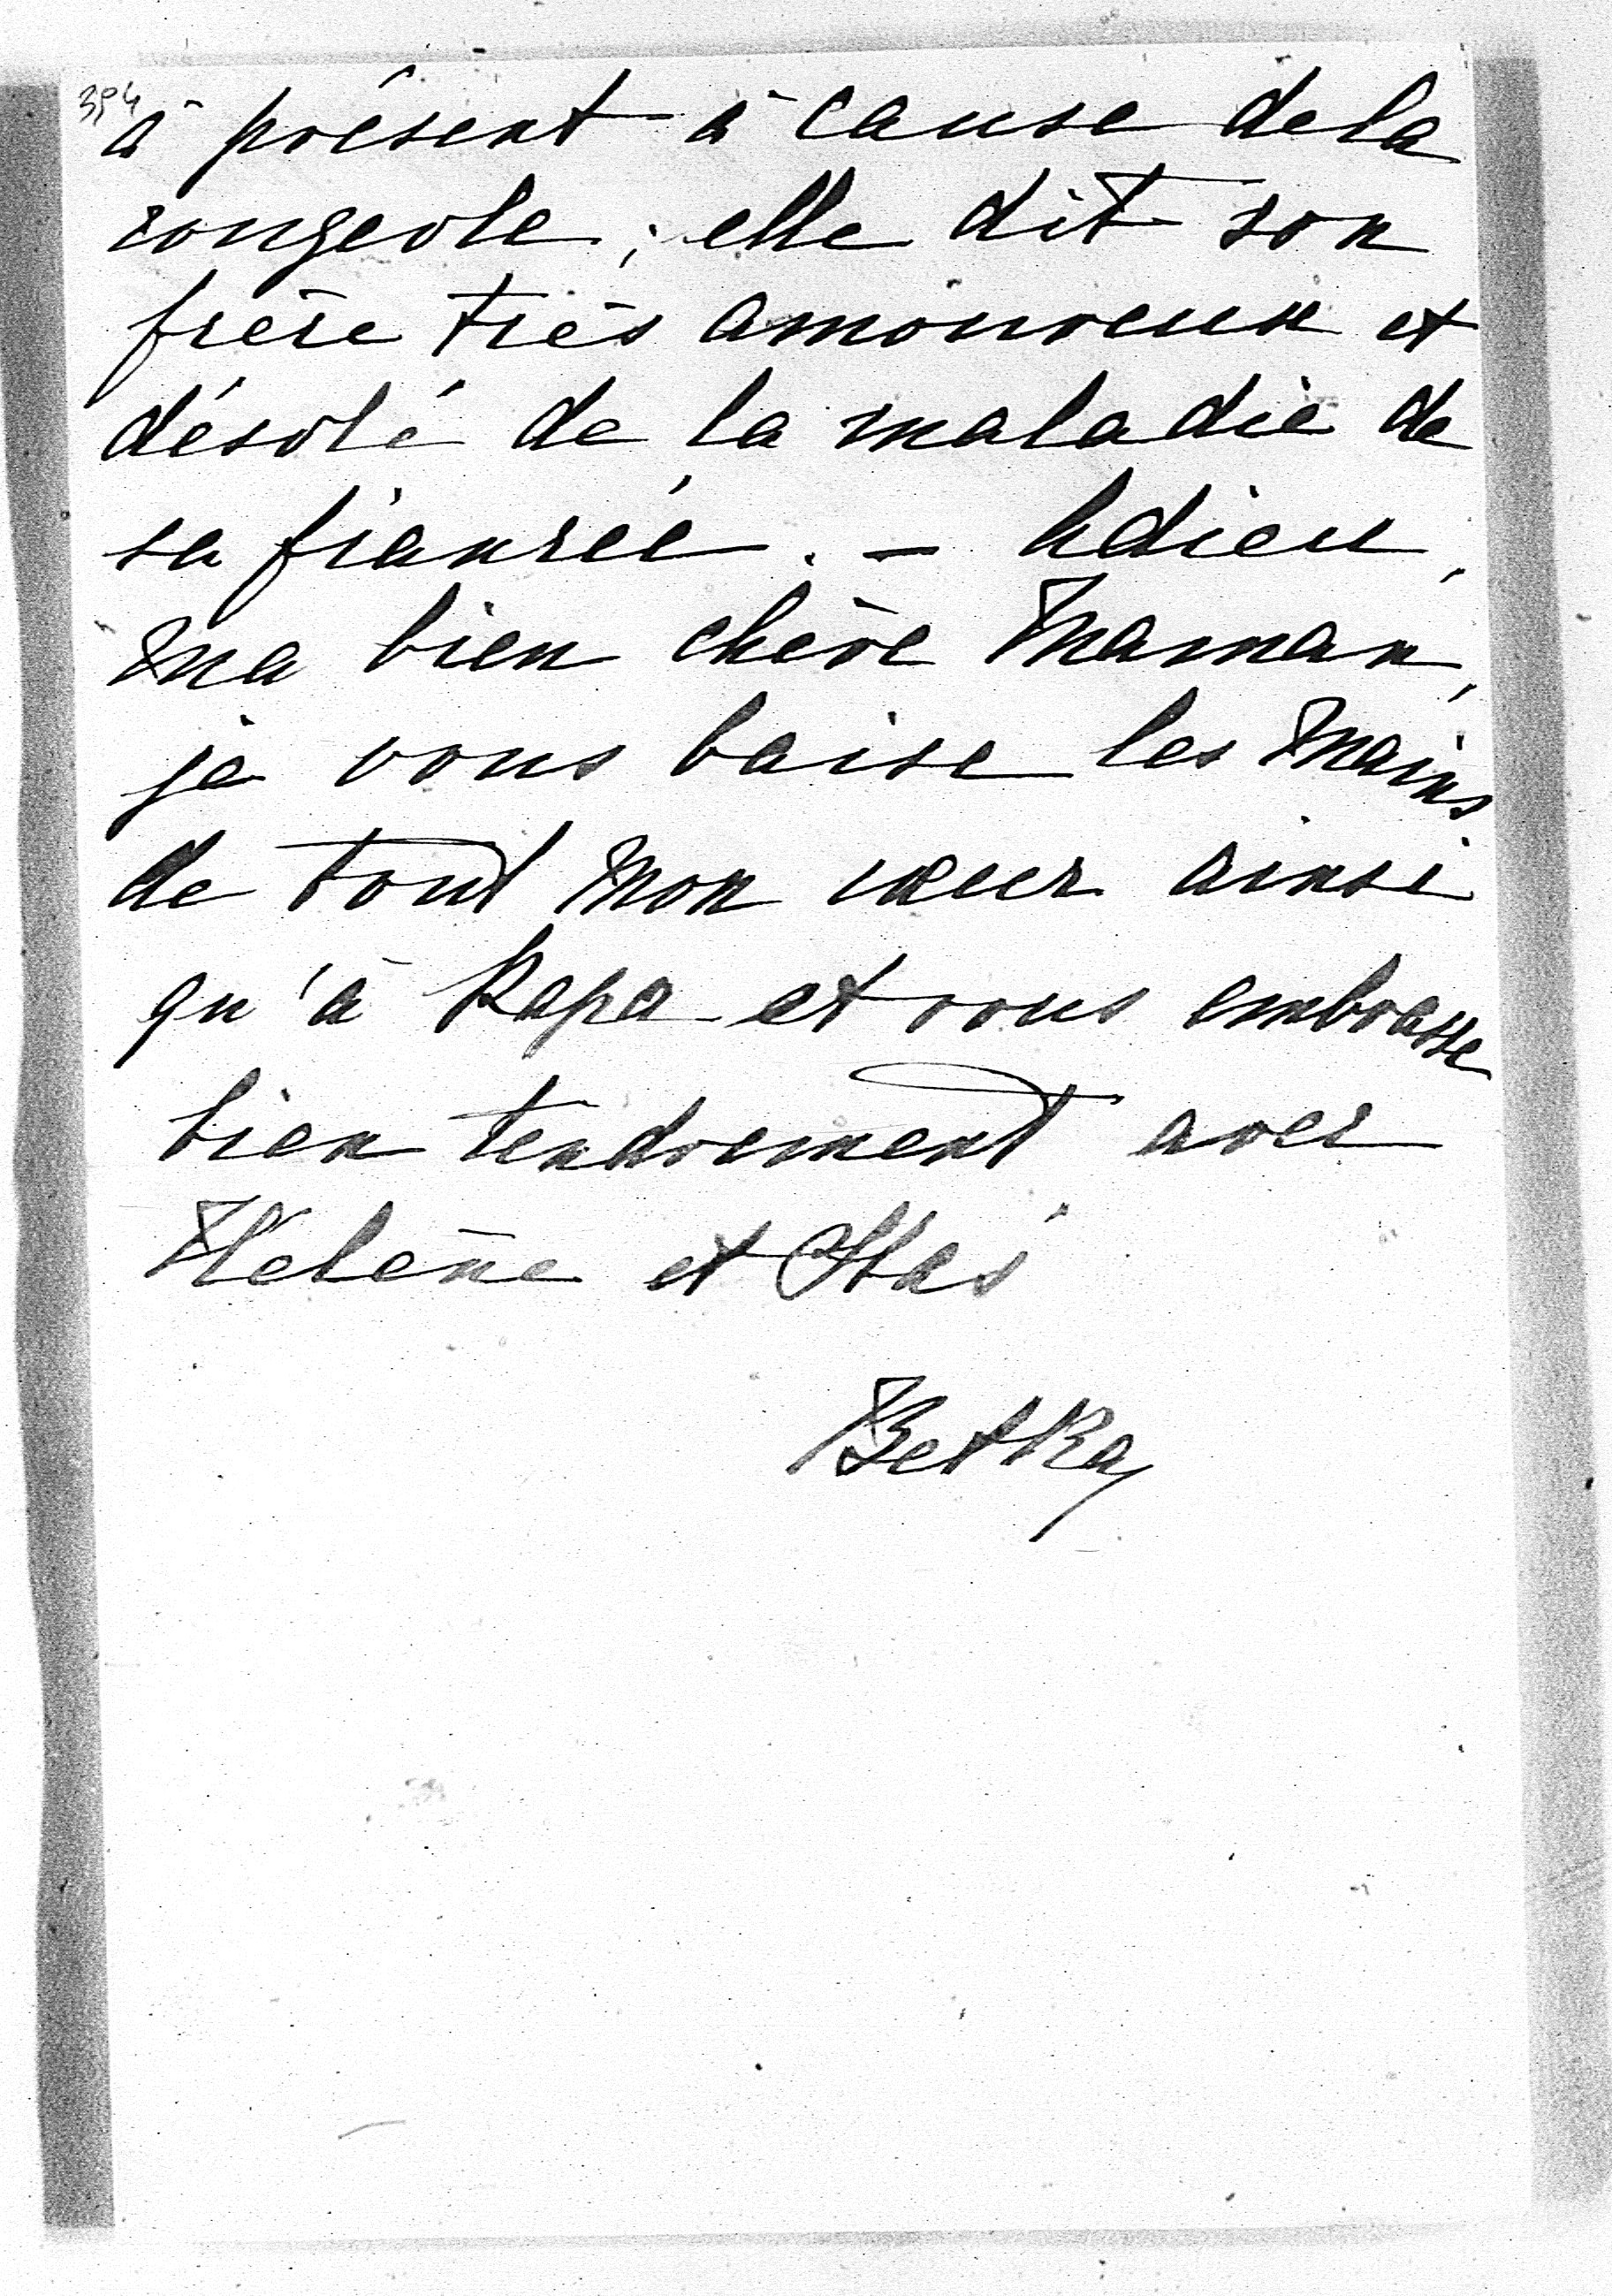 394
à présent à cause de la
rougeole ; elle dit son
frère très amoureux et
désolé de la maladie de
sa fiancée. — Adieu,
ma bien chère Maman,
je vous baise les mains
de tout mon cœur ainsi
qu'à Papa et vous embrasse
bien tendrement avec
Hélène et Stas
Betka